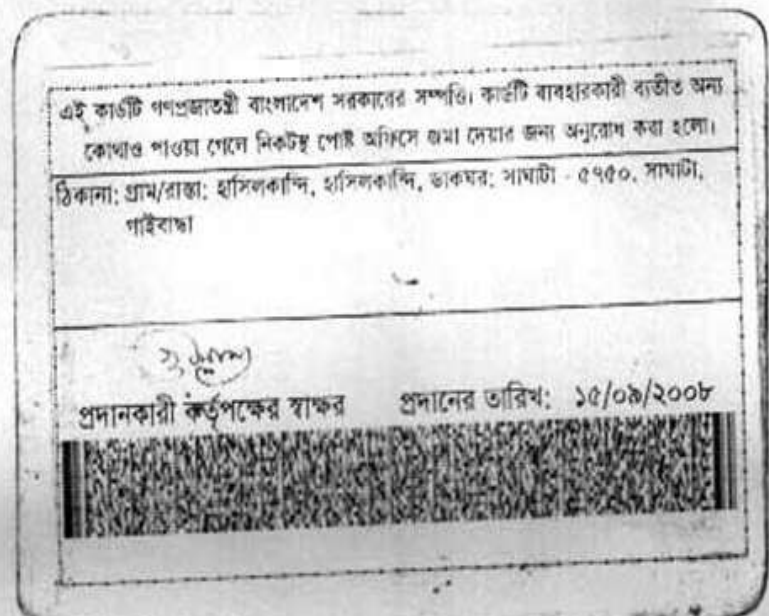 এই কার্ডটি গণপ্রজাতন্ত্রী বাংলাদেশ সরকারের সম্পত্তি। কার্ডটি ব্যবহারকারী ব্যতীত অন্য
কোথাও পাওয়া গেলে নিকটস্থ পোষ্ট অফিসে জমা দেয়ার জন্য অনুরোধ করা হলো।
ঠিকানা: গ্রাম/রাস্তা: হাসিলকান্দি, হাসিলকান্দি, ডাকঘর: সাঘাটা - ৫৭৫০, সাঘাটা,
গাইবান্ধা
প্রদানকারী কর্তৃপক্ষের স্বাক্ষর প্রদানের তারিখ: ১৫/০৯/২০০৮